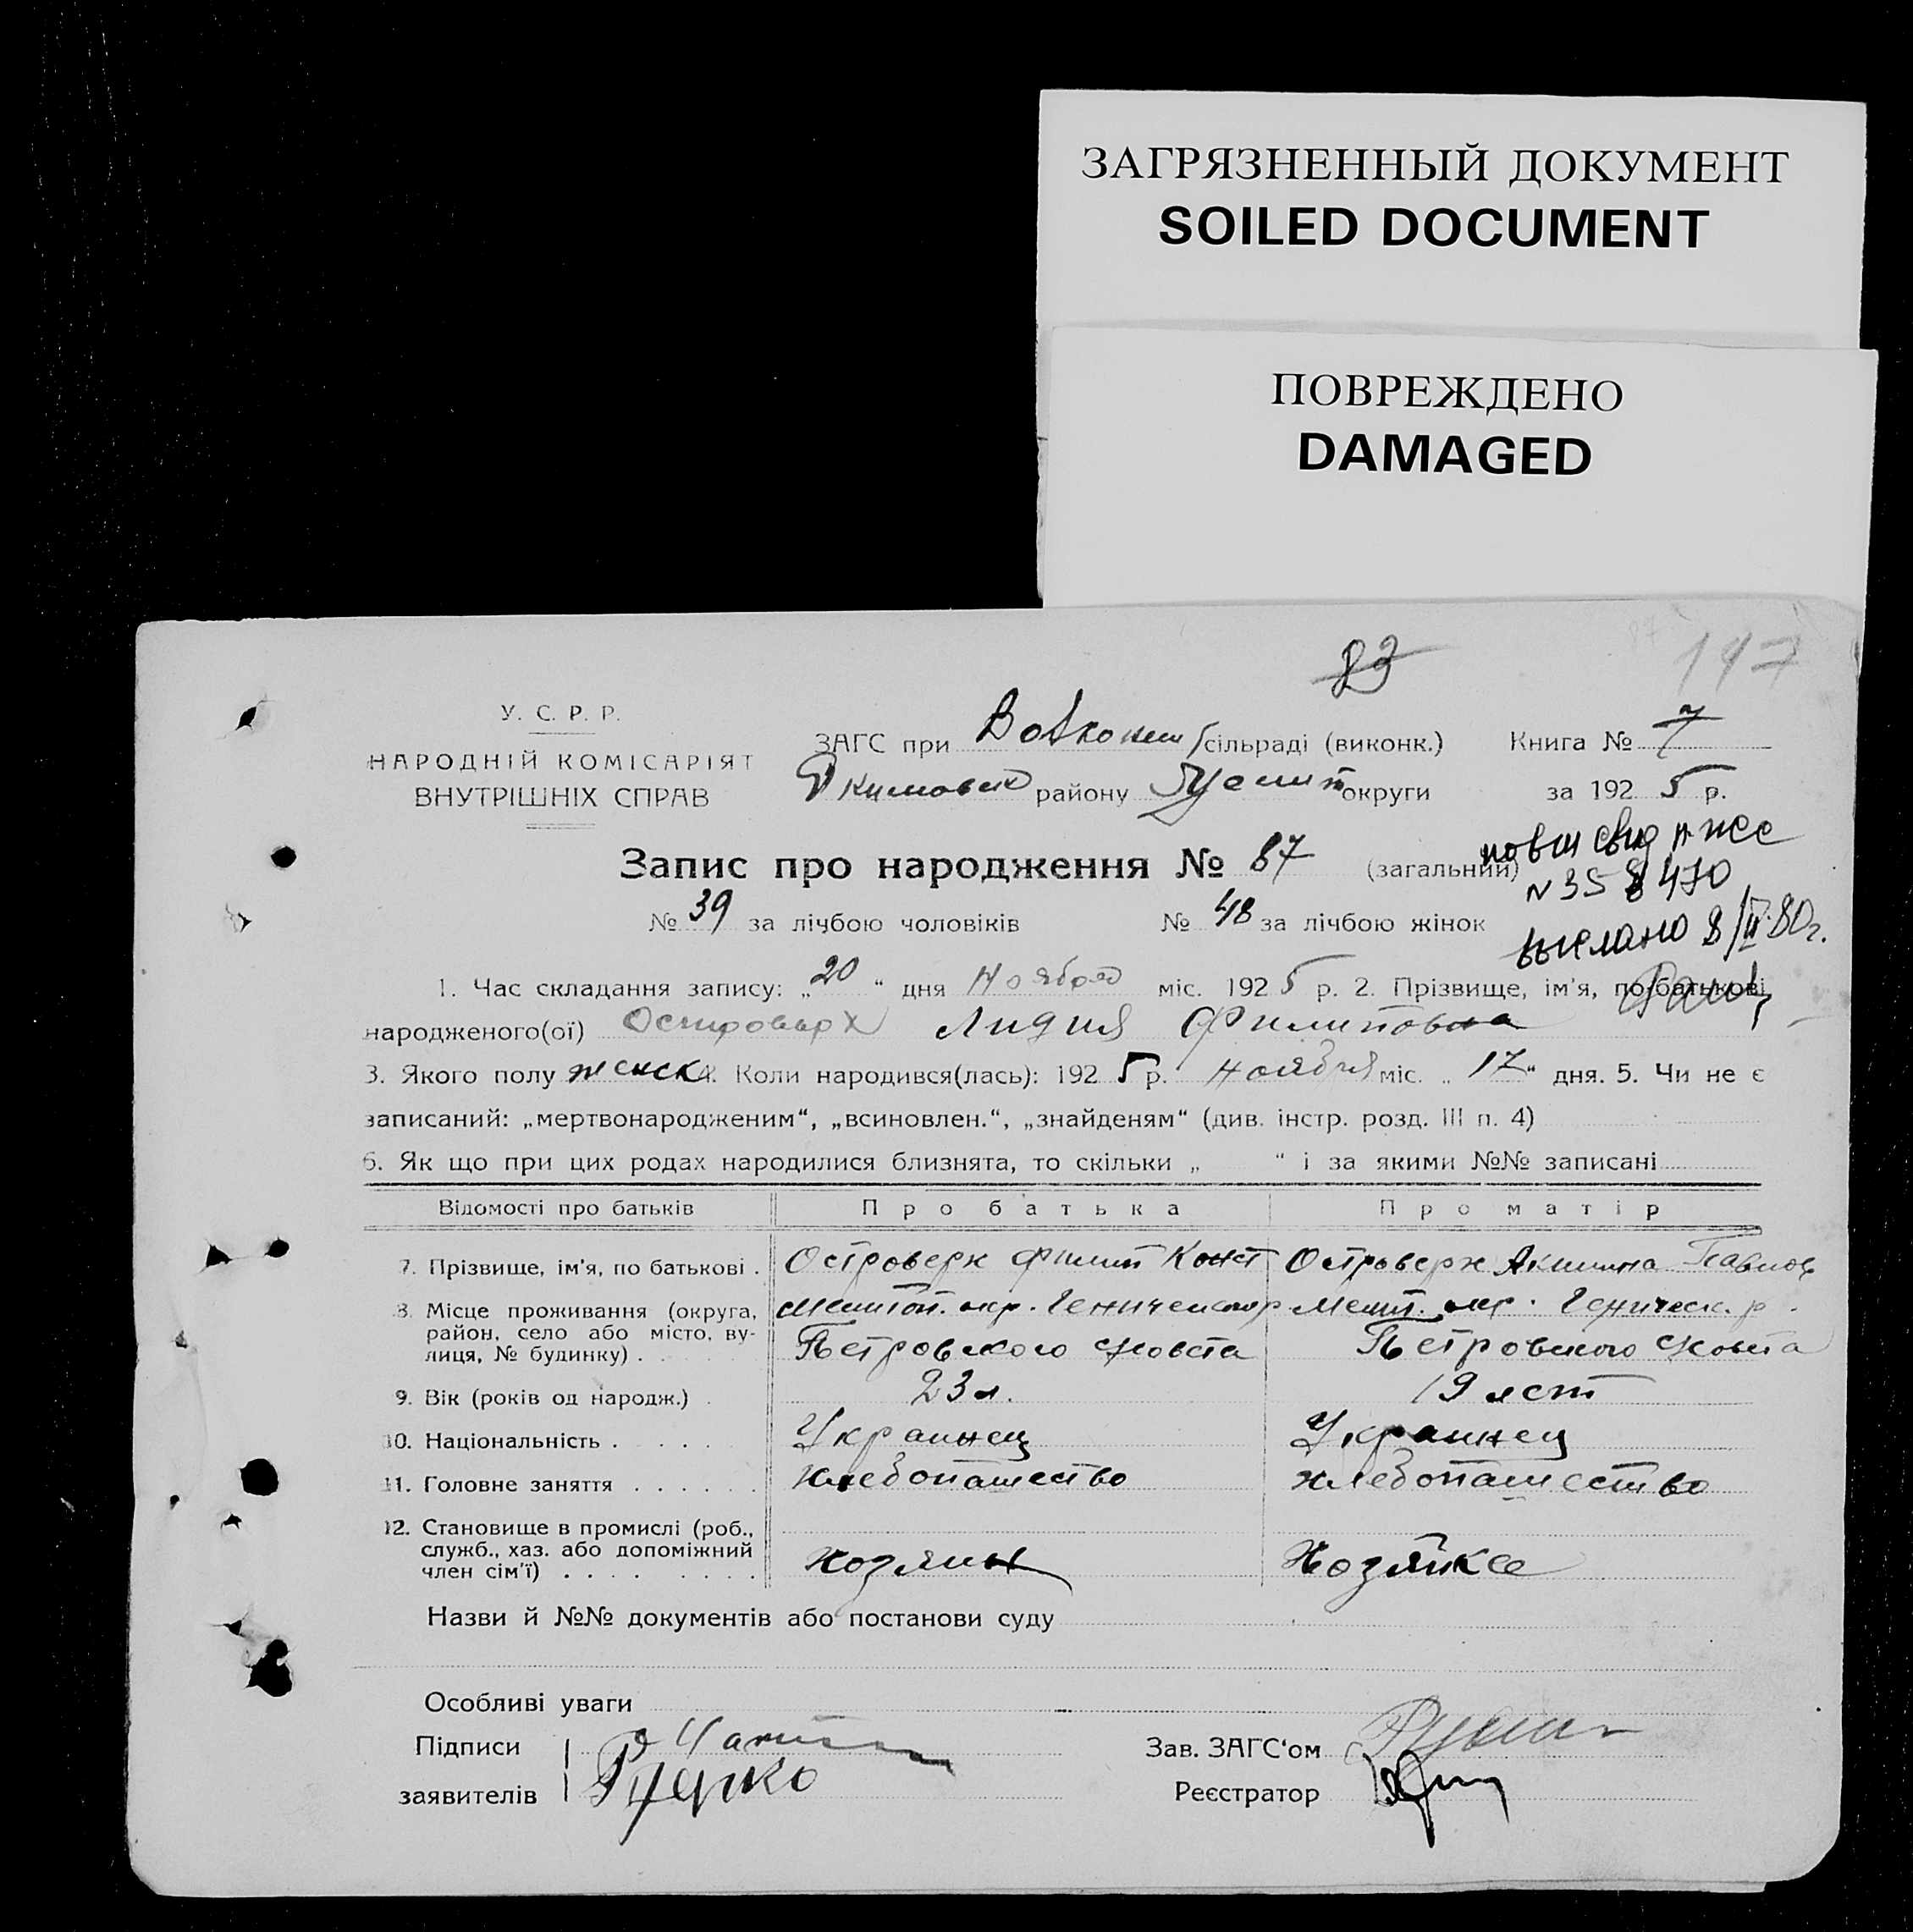 ЗАГРЯЗНЕННЫЙ ДОКУМЕНТ
SOILED DOCUMENT
ПОВРЕЖДЕНО
DAMAGED
83
197
У. С. Р. Р.
НАРОДНІЙ КОМІСАРІЯТ
ВНУТРІШНІХ СПРАВ
ЗАГС при сільраді (виконк.) Книга № 7
району округи за 192 5 р.
Запис про народження № 87 (загальний)
№ 358470
№ 39 за лічбою чоловіків № 48 за лічбою жінок
выслано 8/II-80г.
1. Час складання запису: „ 20 “ дня Ноября міс. 192 5 р. 2. Прізвище, ім'я, по батькові
народженого(ої) Островерх Лидия Филиповна
3. Якого полу женск 4. Коли народився(лась): 192 5 р. Ноября міс. „ 17 “ дня. 5. Чи не є
записаний: „мертвонародженим“, „всиновлен.“, „знайденям“ (див. інстр. розд. III п. 4)
6. Як що при цих родах народилися близнята, то скільки „ “ і за якими №№ записані
Відомості про батьків Про батька Про матір
7. Прізвище, ім'я, по батькові . Островерх Филип Конст Островерх Акилина Павлов
8. Місце проживання (округа, Мелитоп. окр. Геническ р Мелит. окр. Геническ. р.
район, село або місто, ву-
лиця, № будинку) . Петровского Петровского
9. Вік (років од народж.) . 23 л. 19 лет
10. Національність . . . . . Украинец Украинец
11. Головне заняття . . . . . . Хлебопашество Хлебопашество
12. Становище в промислі (роб.,
служб., хаз. або допоміжний
член сім'ї) . . . . . . . . Хозяин Хозяйка
Назви й №№ документів або постанови суду
Особливі уваги
Підписи
Зав. ЗАГС'ом
заявителів
Реєстратор